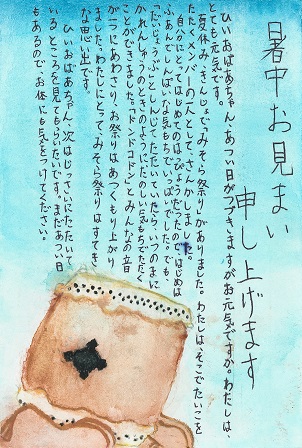 暑中お見まい
申し上げます
ひいおばあちゃん、あつい日がつづきますがお元気ですか。わたしは
とても元気です。
夏休み、きんじょで「みそら祭り」がありました。わたしは、そこでたいこを
たたくメンバーの一人として、さんかしました。
自分にとってはじめてのはっぴょうだったので、はじめは
ふあんしんぱいな気もちでいっぱいでした。でも、
「だいじょうぶ」としんじてたたいていたら、いつのまにか
れんしゅうのときのようにたのしい気もちでたたく
ことができました。「ドンドコドン」とみんなの音
が一つにあわさり、お祭りはあつくもり上がり
ました。わたしにとって、みそら祭りはすてき
な思い出です。
ひいおばあちゃん、次はじっさいにたたいて
いるところを見てもらいたいです。まだあつい日
もあるので、お体にも気をつけてください。